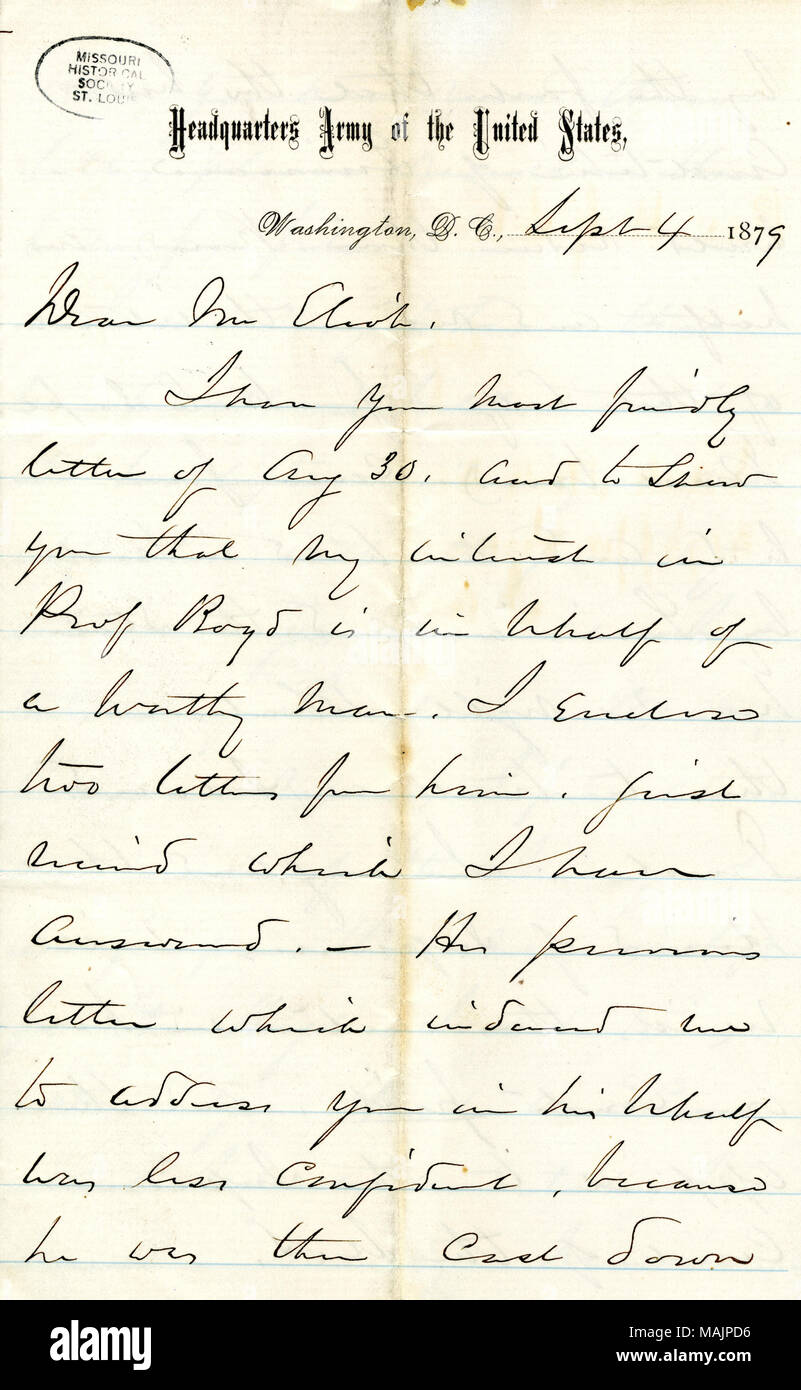 MISSOURI
HISTORICAL
SOCIETY
ST. LOUIS
Headquarters Army of the United States,
Washington, D. C., Sept 4 1879
Dear Mr Eliot.
I have your most friendly
letter of Aug 30. and to show
you that my interest in
Prof Boyd is in behalf of
a worthy man. I Enclose
two letters from him. just
recvd which I have
answered. — His previous
letter which induced me
to address you in his behalf
was less confident, because
he was then cast down
alamy
Image ID: MAJPD6
www.alamy.com